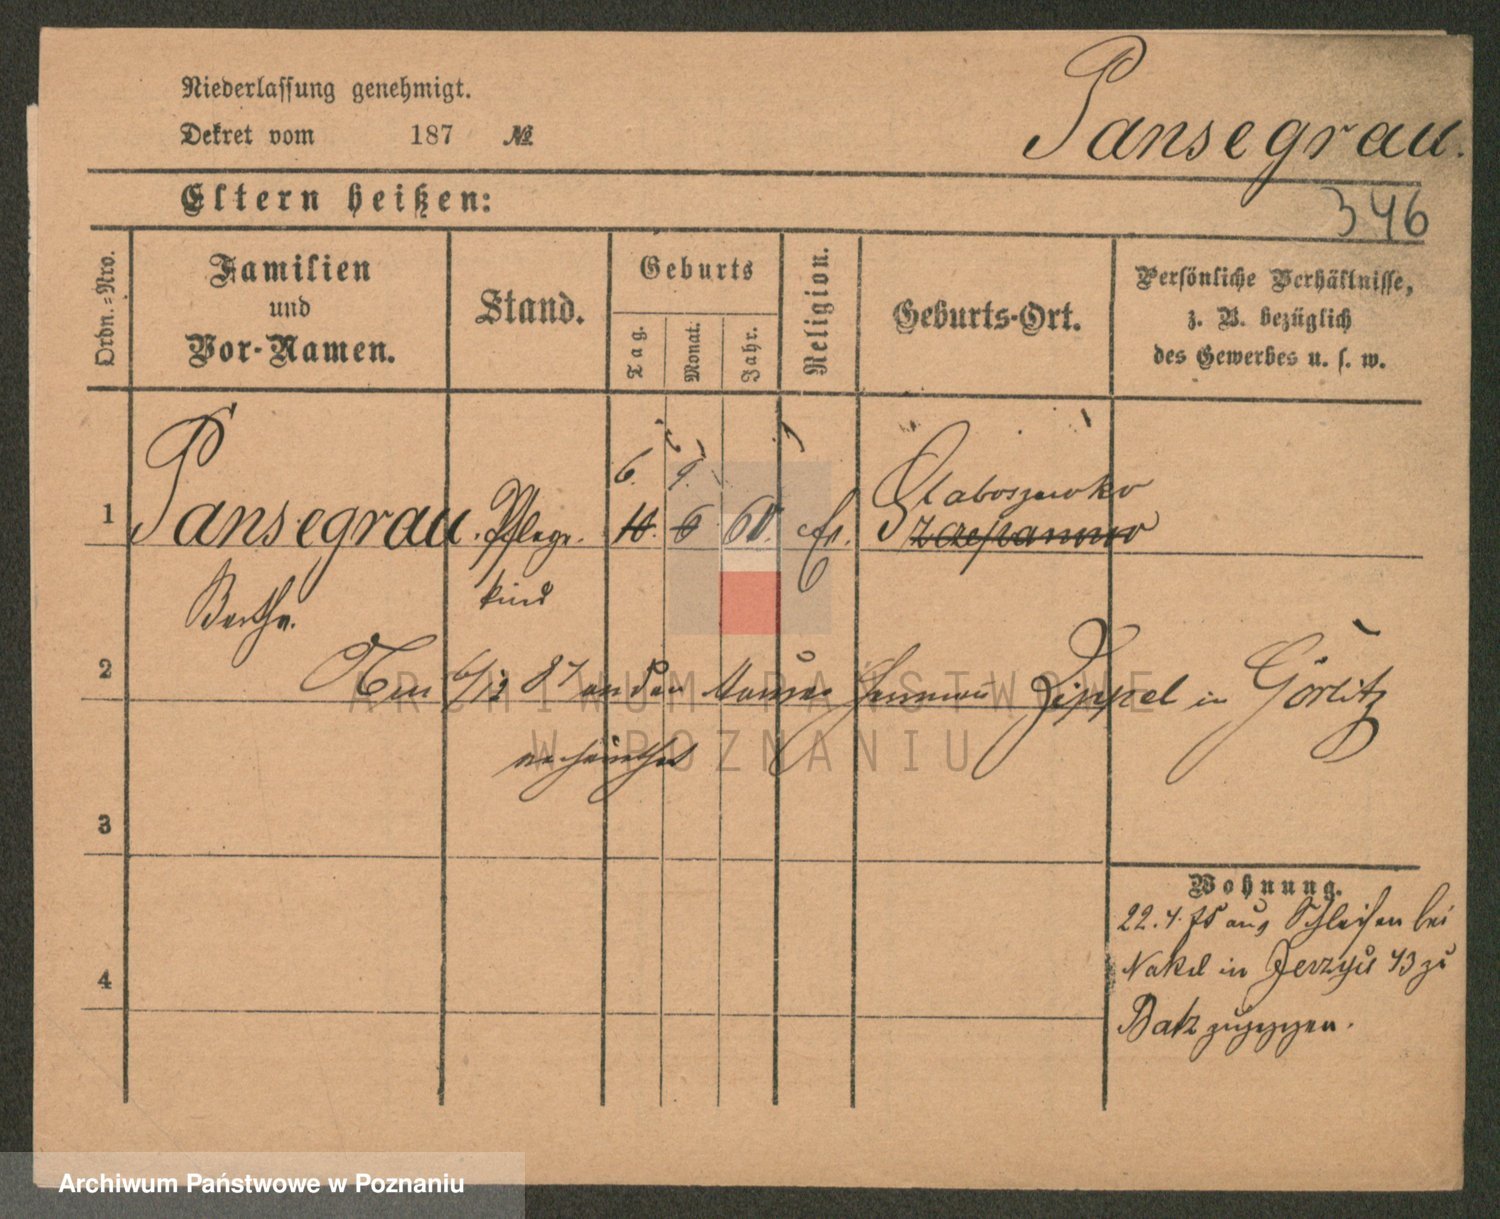 Niederlassung genehmigt.
Dekret vom 187 №
Pansegrau.
Eltern heißen:
346
Ordn.=Nro.
Familien
und
Vor-Namen.
Stand.
Geburts
Tag.
Monat.
Jahr.
Religion.
Geburts-Ort.
Persönliche Verhältnisse,
z. B. bezüglich
des Gewerbes u. s. w.
6. 9.
1 Pansegrau. Pflege- 10. 6 60.
Szczepanowo
Berthe. kind
2 Am 6/12 87 an den Herman Zippel in Görlitz
verheirathet
ARCHIWUM PAŃSTWOWE
W POZNANIU
3
4
Wohnung.
22.4.75 aus Schleisen bei
Nakel in Jerzyce 43 zu
Batz zugezogen.
Archiwum Państwowe w Poznaniu